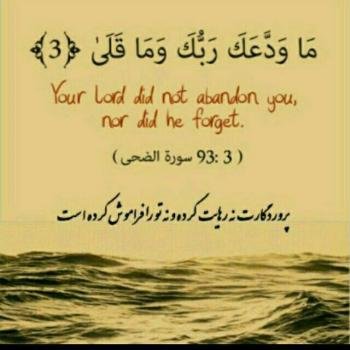 مَا وَدَّعَكَ رَبُّكَ وَمَا قَلَىٰ ﴿3﴾
Your Lord did not abandon you,
nor did he forget.
( 93: 3 سورة الضحى )
پروردگارت نه رهایت کرده و نه تو را فراموش کرده است